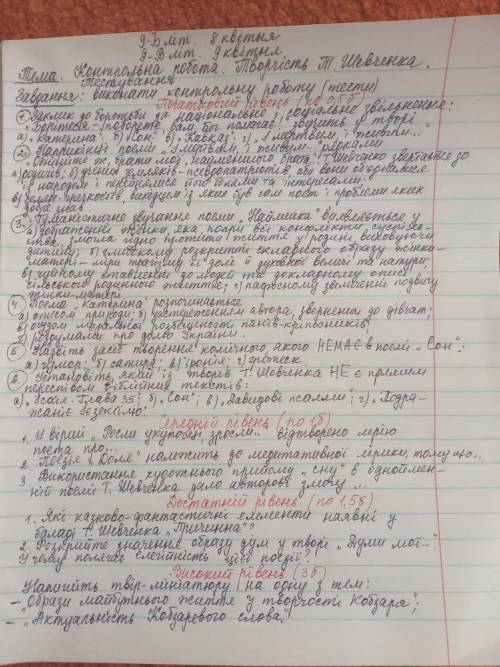 9-Б літ. 8 квітня
9-В літ. 9 квітня
Тема. Контрольна робота. Творчість Т. Шевченка.
Тестування
Завдання: виконати контрольну роботу (тести)
Початковий рівень (по 0,5б)
1. Заклик до боротьби за національне і соціальне звільнення:
"Борітеся - поборете, вам Бог помагає!" звучить у творі
а) "Катерина"; б) "Сон"; в) "Кавказ"; г) "І мертвим, і живим..."
2. Наприкінці поеми "І мертвим, і живим..." рядками
"Обніміте ж, брати мої, найменшого брата" Т. Шевченко звертається до
а) родичів; б) учених земляків-псевдопатріотів, аби вони об'єдналися
з народом і перейнялися його болями та інтересами;
в) селян-кріпаків, вихідцем із яких був сам поет і проблеми яких
добре знав
3. Гуманістичне звучання поеми "Наймичка" виявляється у
а) зображенні жінки, яка, попри всі конфлікти суспільс-
тва, змогла гідно прожити життя у родині, виховуючи
дитину; б) глибокому розкритті складного образу жінки-
матері - міри трагізму її долі й духовної величі та натури;
в) чуйному ставленні до людей та докладному описі
сільського родинного життя; г) пафосному звеличенні подвигу
жінки-матері
4. Поема "Катерина" розпочинається
а) описом природи; б) застереженням автора, зверненим до дівчат;
в) осудом моральної розбещеності панів-кріпосників
г) роздумами про долю України.
5. Назвіть засіб творення комічного, якого НЕМАЄ в поемі "Сон":
а) гумор; б) сатира; в) іронія; г) гротеск
6. Установіть, який із творів Т. Шевченка НЕ є прямим
переспівом біблійних текстів:
а) "Ісаія. Глава 35"; б) "Сон"; в) "Давидові псалми"; г) "Подра-
жаніє Ієзекіїлю"
Середній рівень (по 1б)
1. У вірші "Росли укупочці, зросли..." відтворено мрію
поета про...
2. Поезія "Доля" належить до медитативної лірики, тому що...
3. Використання художнього прийому "сну" в одноймен-
ній поемі Т. Шевченка дало авторові змогу ...
Достатній рівень (по 1,5б)
1. Які казково-фантастичні елементи наявні у
баладі Т. Шевченка "Причинна"?
2. Розкрийте значення образу дум у творі "Думи мої..."
У чому полягає елегійність цієї поезії?
Високий рівень (3б)
Напишіть твір-мініатюру на одну з тем:
- "Образи майбутнього життя у творчості Кобзаря";
- "Актуальність Кобзаревого слова".